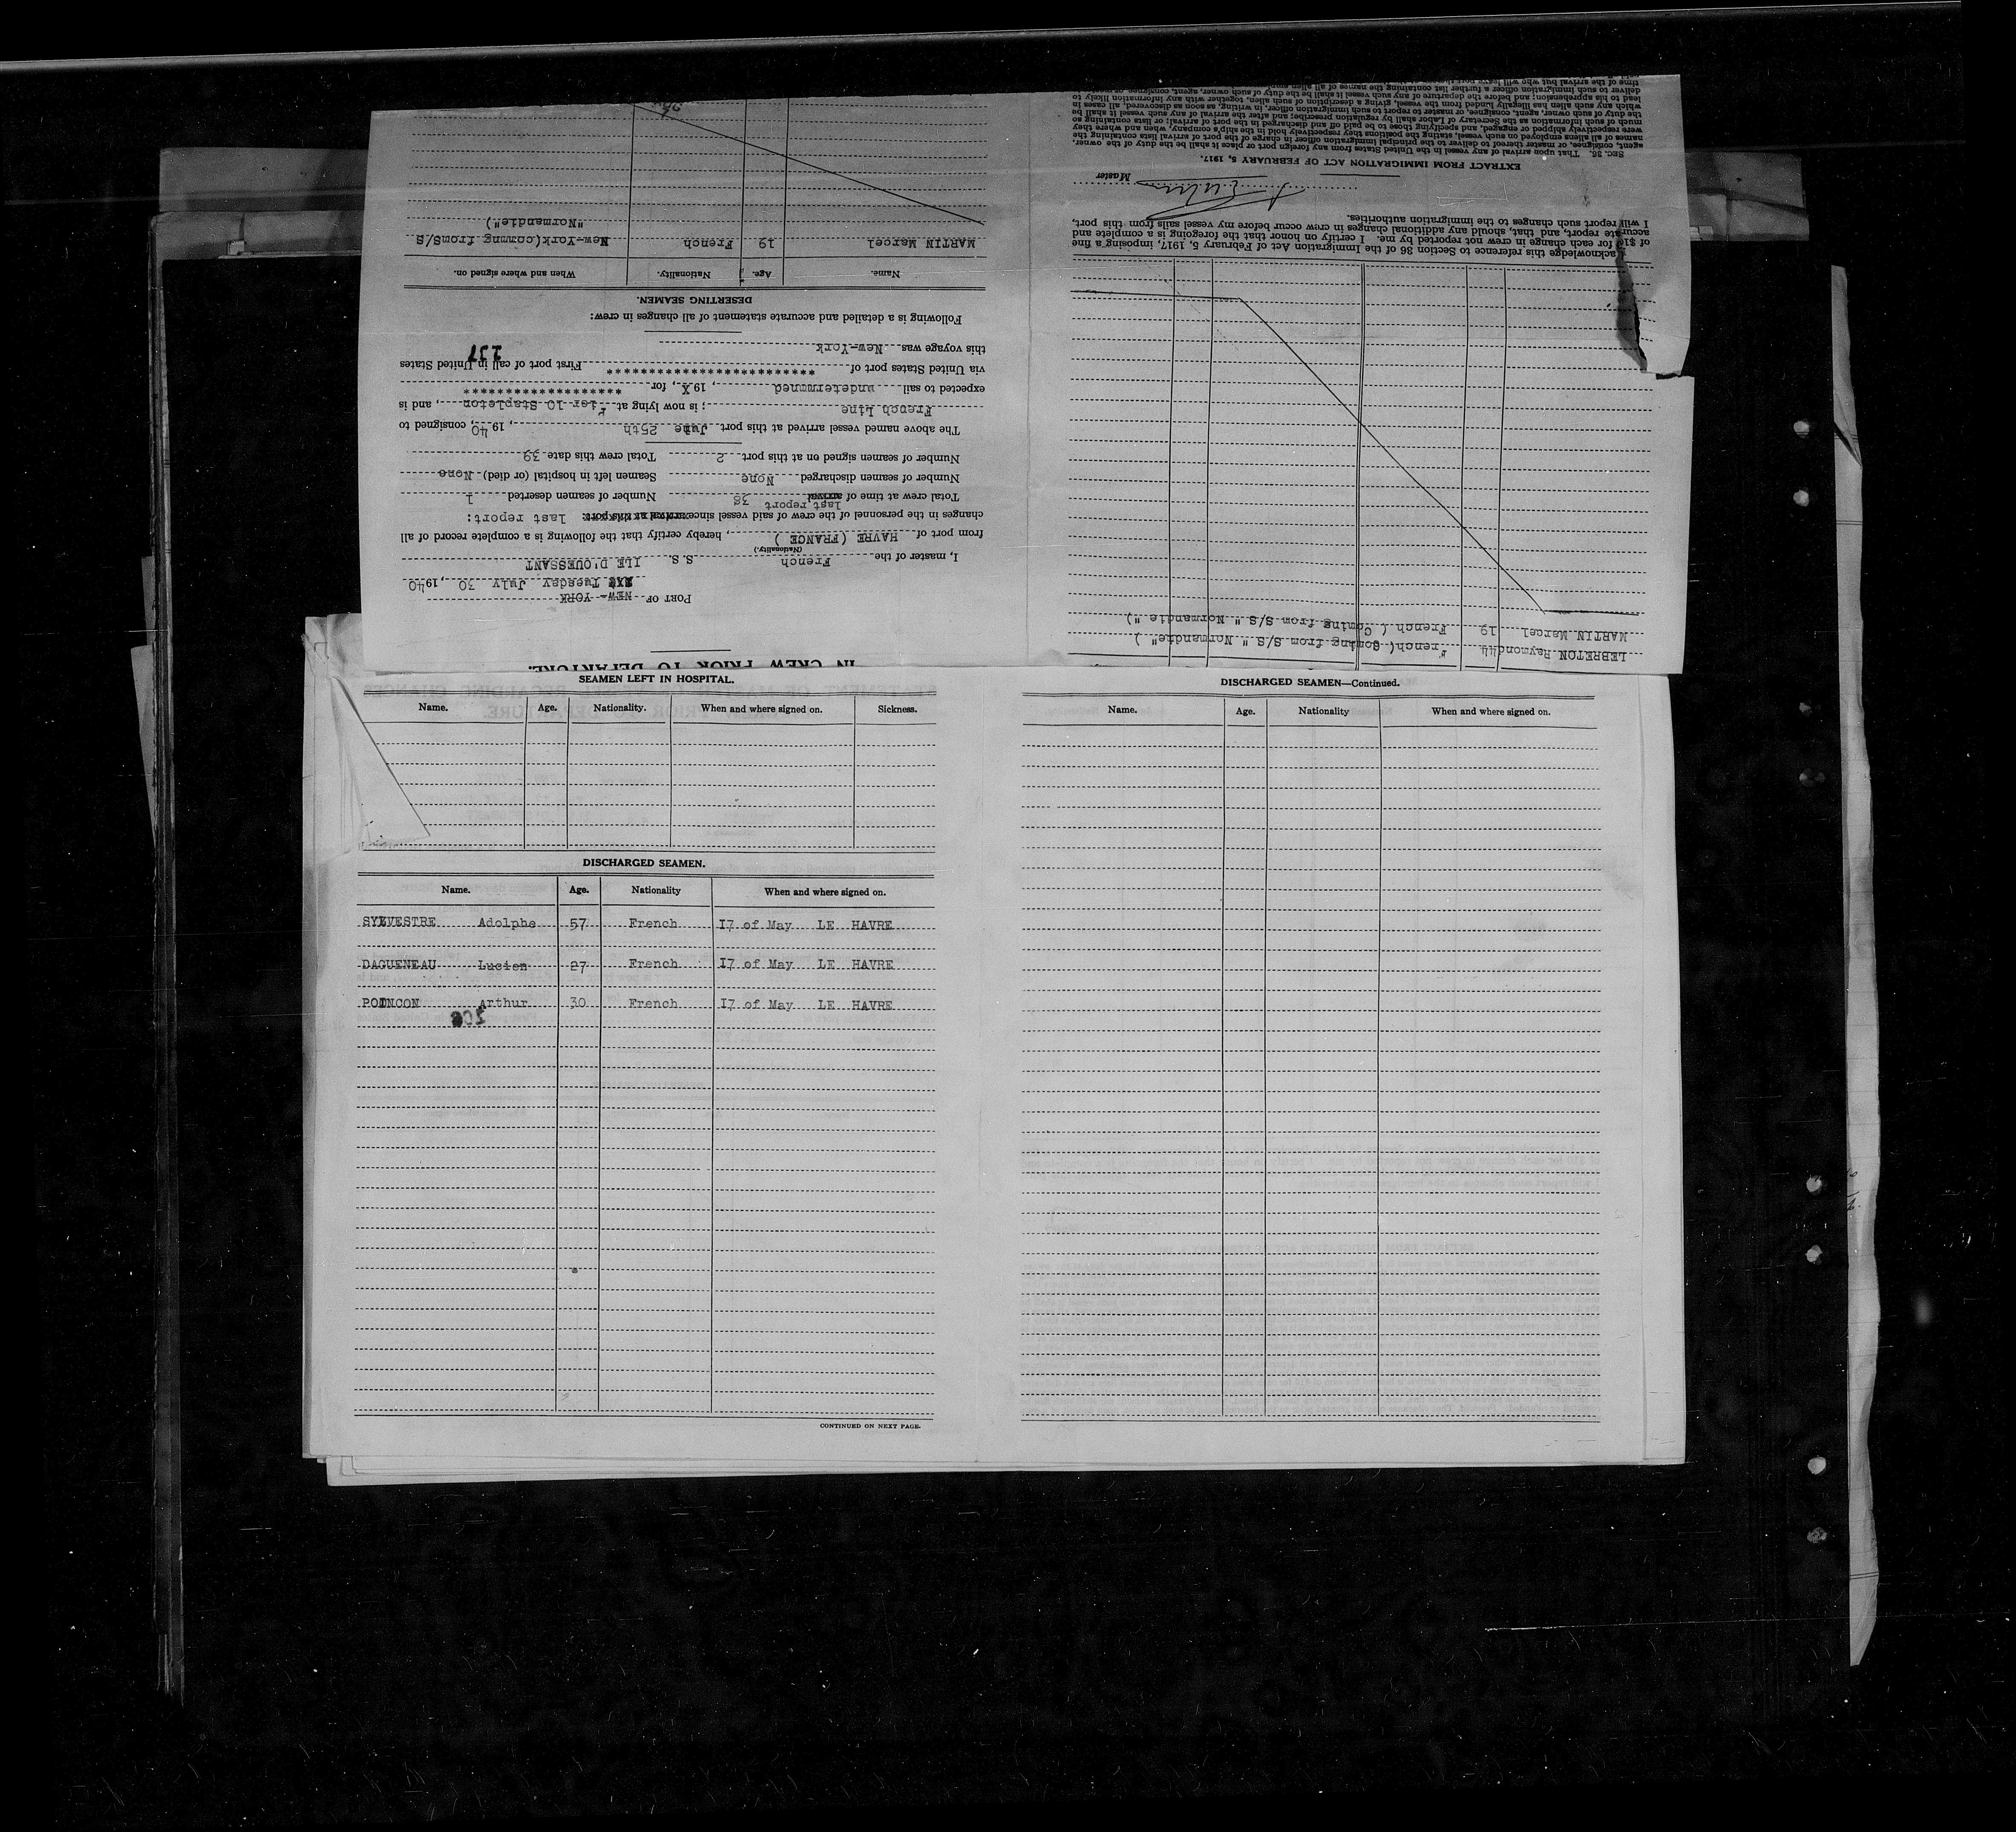 IN CREW PRIOR TO DEPARTURE.
PORT OF NEW-YORK
Tuesday July 30, 1940
I, master of the French S.S. ILE D'OUESSANT
(Nationality.)
from port of HAVRE (FRANCE ), hereby certify that the following is a complete record of all
changes in the personnel of the crew of said vessel since arrival at this port: last report:
last report
Total crew at time of arrival 38 Number of seamen deserted 1
Number of seamen discharged None Seamen left in hospital (or died) None
Number of seamen signed on at this port 2 Total crew this date 39
The above named vessel arrived at this port June 25th, 1940, consigned to
French Line; is now lying at Pier 10 Stapleton, and is
expected to sail undetermined, 19X, for *******************
via United States port of ************************* First port of call in United States
this voyage was New-York
137
Following is a detailed and accurate statement of all changes in crew:
DESERTING SEAMEN.
Name. Age. Nationality. When and where signed on.
MARTIN Marcel 19 French New-York(coming fromS/S
"Normandie")
LEBRETON Raymond 44 French( Coming from S/S " Normandie" )
MARTIN Marcel 19 French ( Coming from S/S " Normandie ")
I acknowledge this reference to Section 36 of the Immigration Act of February 5, 1917, imposing a fine
of $10 for each change in crew not reported by me. I certify on honor that the foregoing is a complete and
accurate report, and, that, should any additional changes in crew occur before my vessel sails from this port,
I will report such changes to the immigration authorities.
Master
EXTRACT FROM IMMIGRATION ACT OF FEBRUARY 5, 1917.
Sec. 36. That upon arrival of any vessel in the United States from any foreign port or place it shall be the duty of the owner,
agent, consignee, or master thereof to deliver to the principal immigration officer in charge of the port of arrival lists containing the
names of all aliens employed on such vessel, stating the positions they respectively hold in the ship's company, when and where they
were respectively shipped or engaged, and specifying those to be paid off and discharged in the port of arrival; or lists containing so
much of such information as the Secretary of Labor shall by regulation prescribe; and after the arrival of any such vessel it shall be
the duty of such owner, agent, consignee, or master to report to such immigration officer, in writing, as soon as discovered, all cases in
which any such alien has illegally landed from the vessel, giving a description of such alien, together with any information likely to
lead to his apprehension; and before the departure of any such vessel it shall be the duty of such owner, agent, consignee, or master
deliver to such immigration officer a further list containing the names of all alien
time of the arrival but who will leave port
SEAMEN LEFT IN HOSPITAL.
Name. Age. Nationality. When and where signed on. Sickness.
DISCHARGED SEAMEN.
Name. Age. Nationality When and where signed on.
SYLVESTRE Adolphe 57 French I7 of May LE HAVRE
DAGUENEAU Lucien 27 French I7 of May LE HAVRE
POINCON Arthur 30 French I7 of May LE HAVRE
CONTINUED ON NEXT PAGE.
DISCHARGED SEAMEN—Continued.
Name. Age. Nationality When and where signed on.